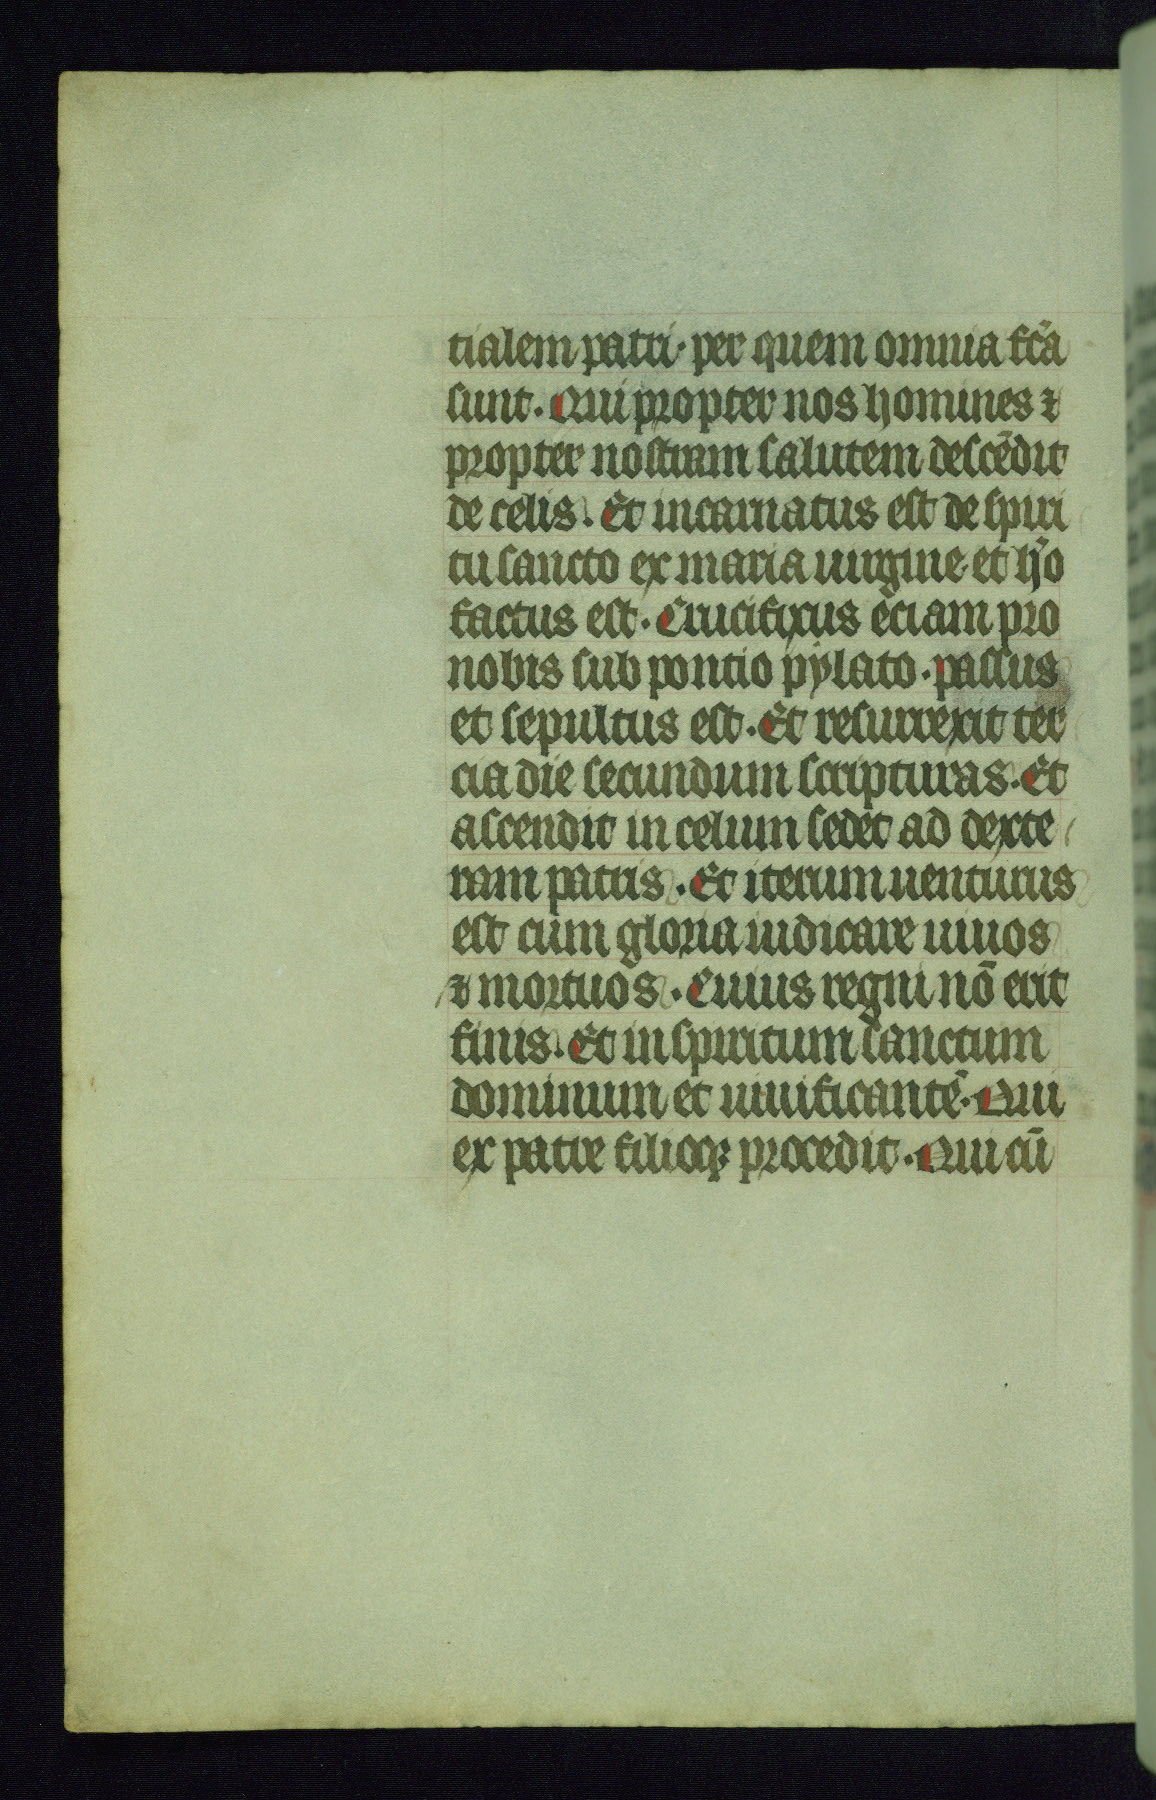 tialem patri· per quem omnia fc̄a
sunt. Qui propter nos homines ⁊
propter nostram salutem descēdit
de celis. Et incarnatus est de spiri
tu sancto ex maria uirgine et hō
factus est. Crucifixus eciam pro
nobis sub pontio pylato. passus
et sepultus est. Et resurrexit ter
cia die secundum scripturas. Et
ascendit in celum sedet ad dexte
ram patris. Et iterum uenturus
est cum gloria iudicare uiuos
⁊ mortuos. Cuius regni nō erit
finis. Et in spiritum sanctum
dominum et uiuificantē. Qui
ex patre filioqꝫ procedit. Qui cū